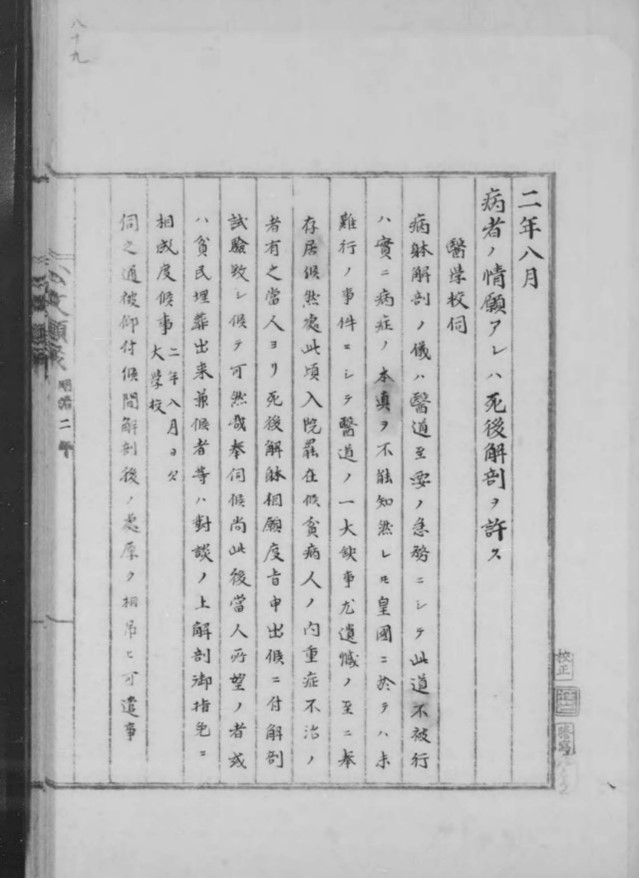 八十九
二年八月
病者ノ情願アレハ死後解剖ヲ許ス
醫學校伺
病躰解剖ノ儀ハ醫道至要ノ急務ニシテ此道不被行
ハ實ニ病症ノ本真ヲ不能知然レ𪜈皇國ニ於テハ未
難行ノ事件ニシテ醫道ノ一大缺事尤遺憾ノ至ニ奉
存居候然處此頃入院罷在候貧病人ノ内重症不治ノ
者有之當人ヨリ死後解躰相願度旨申出候ニ付解剖
試驗致シ候テ可然哉奉伺候尚此後當人所望ノ者或
ハ貧民埋葬出来兼候者等ハ對談ノ上解剖御指免ニ
相成度候事 二年八月ヨ欠
大學校
伺之通被仰付候間解剖後ノ處厚ク相吊ヒ可遣事
公文類
明治二年
校正